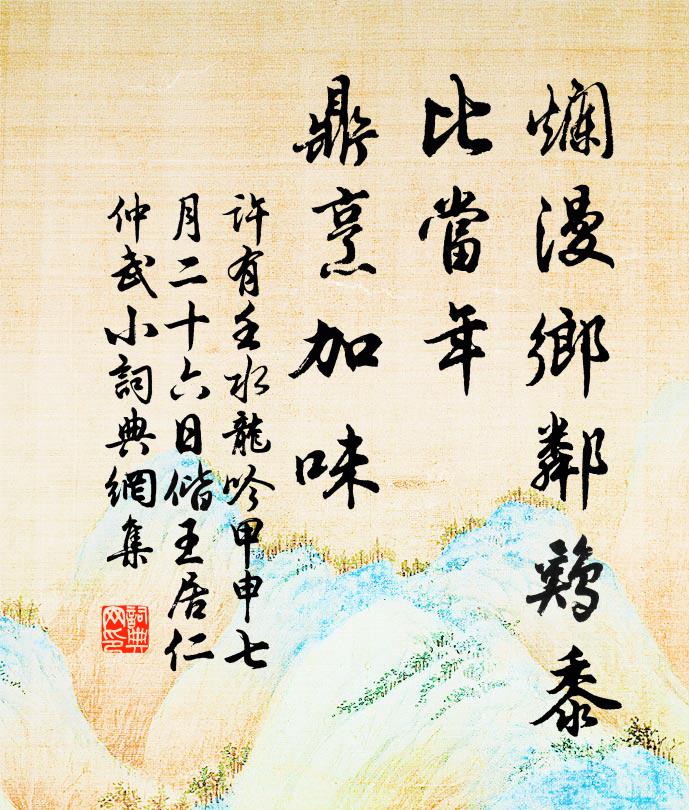 爛漫鄉鄰鷄黍
比當年
鼎烹加味
許有壬水龍吟甲申七
月二十六日偕王居仁
仲武小詞典網集
詞典